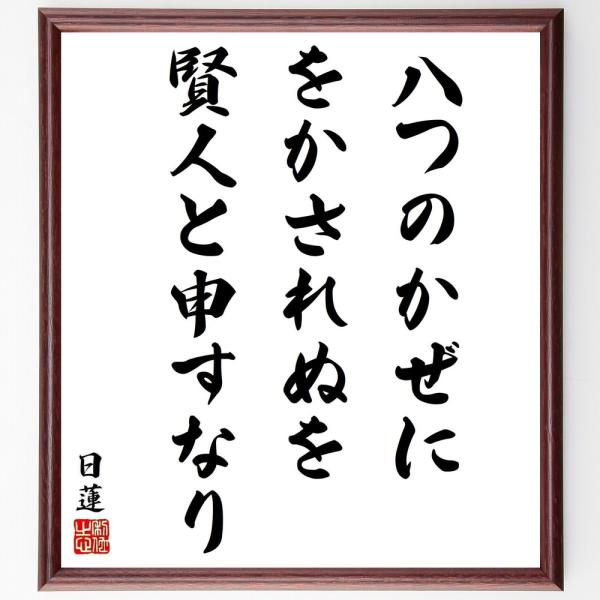 八つのかぜに
をかされぬを
賢人と申すなり
日蓮